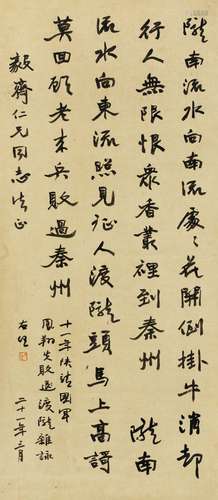 隴南流水向南流處〻花開倒掛牛消却
行人無限恨眾香叢裡到秦州 隴南
流水向東流照見征人渡隴頭馬上高謌
莫回顧老來兵敗過秦州
毅齋仁兄同志法正
十一年陝靖國軍
鳳翔失敗退渡隴雜詠
二十一年三月
右任